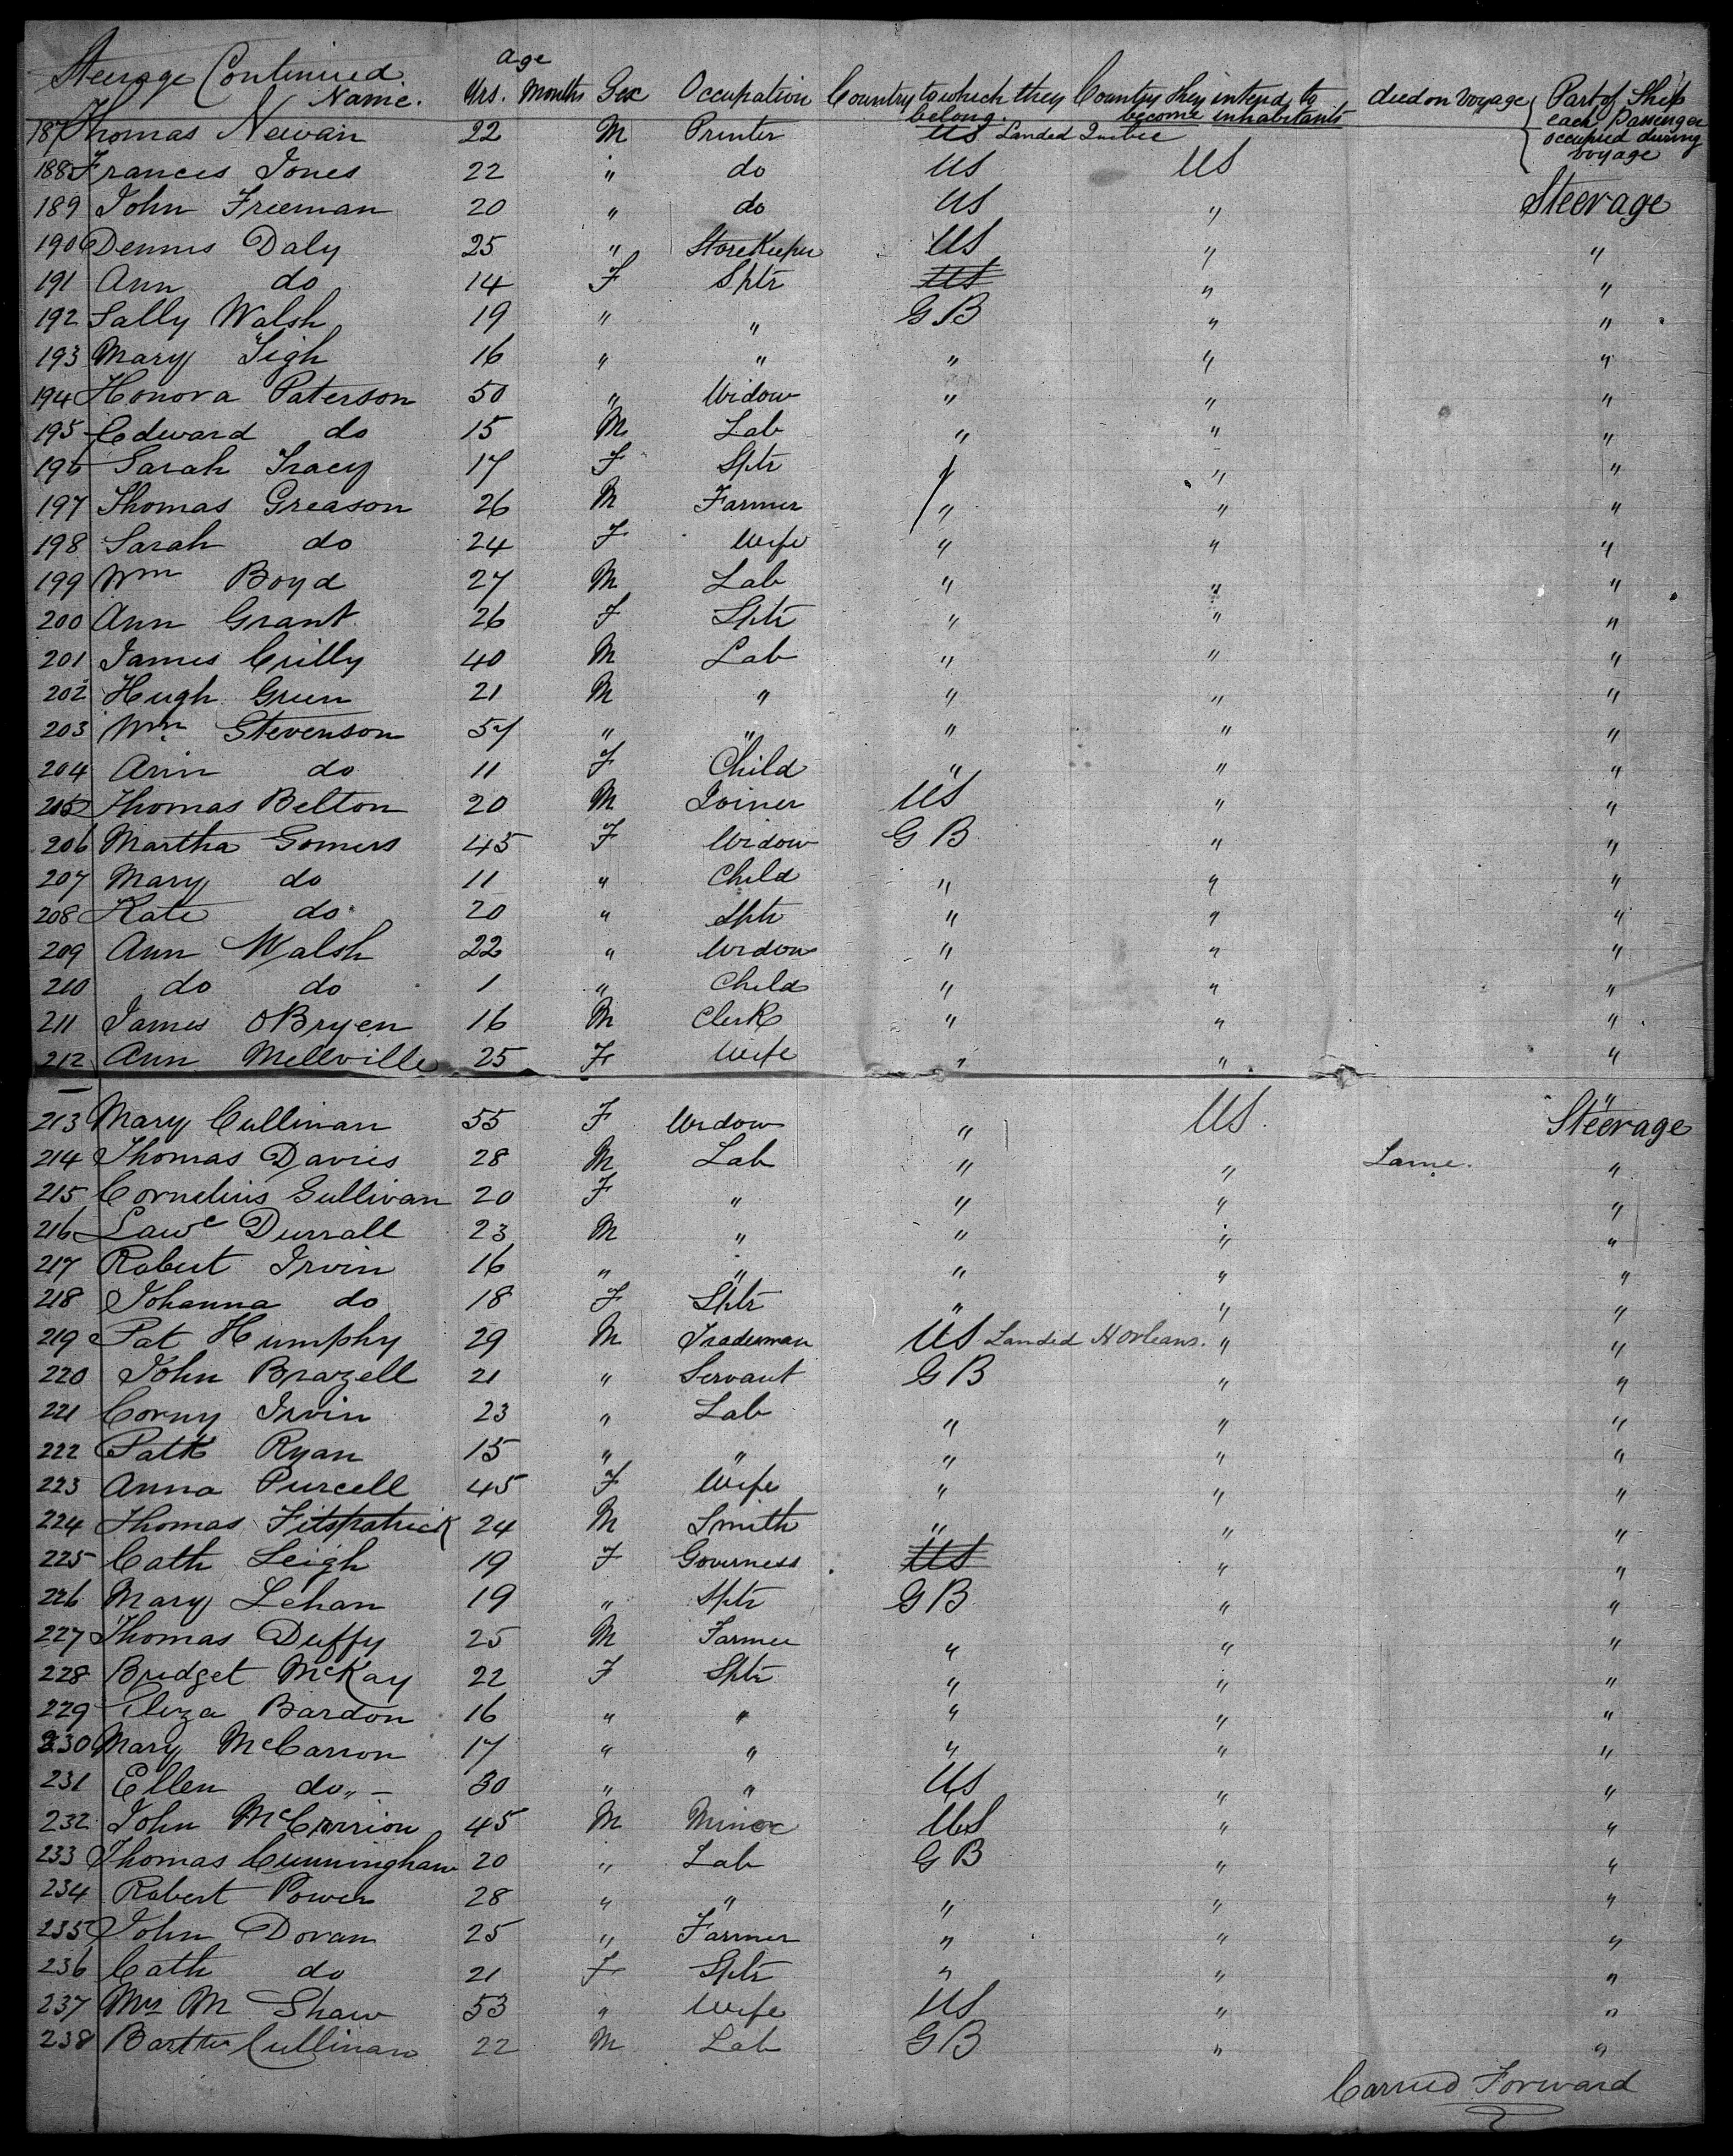 Steerage Continued.
Name. Age Yrs. Months Sex Occupation Country to which they belong. Country they intend to become inhabitants died on Voyage Part of Ship each Passenger occupied during voyage
187 Thomas 22 M Printer US Landed Quebec
188 Frances Jones 22 " do US US
189 John Freeman 20 " do US " Steerage
190 Dennis Daly 25 " StoreKeeper US " "
191 Ann do 14 F Sptr US " "
192 Sally Walsh 19 " " G B " "
193 Mary Tigh 16 " " " " "
194 Honora Paterson 50 " Widow " " "
195 Edward do 15 M Lab " " "
196 Sarah Tracy 17 F Sptr " " "
197 Thomas Greason 26 M Farmer " " "
198 Sarah do 24 F Wife " " "
199 Wm Boyd 27 M Lab " " "
200 Ann Grant 26 F Sptr " " "
201 James Crilly 40 M Lab " " "
202 Hugh Green 21 M " " " "
203 Wm. Stevenson 57 " " " " "
204 Ann do 11 F Child " " "
205 Thomas Belton 20 M Joiner US " "
206 Martha Somers 45 F Widow G B " "
207 Mary do 11 " Child " " "
208 Kate do 20 " Sptr " " "
209 Ann Walsh 22 " Widow " " "
210 do do 1 " Child " " "
211 James OBryen 16 M Clerk " " "
212 Ann Mellville 25 F Wife " " "
213 Mary Cullinan 55 F Widow " US " Steerage
214 Thomas Davies 28 M Lab " " Lame. "
215 Cornelius Sullivan 20 F " " " "
216 Lawc Durrall 23 M " " " "
217 Robert Irvin 16 " " " " "
218 Johanna do 18 F Sptr " " "
219 Pat Humphy 29 M Tradesman US Landed N Orleans. " "
220 John Brazell 21 " Servant G B " "
221 Corny Irvin 23 " Lab " " "
222 Patk Ryan 15 " " " " "
223 Anna Purcell 45 F Wife " " "
224 Thomas Fitspatrick 24 M Smith " " "
225 Cath Leigh 19 F Governess US " "
226 Mary Lehan 19 " Sptr G B " "
227 Thomas Duffy 25 M Farmer " " "
228 Bridget McKay 22 F Sptr " " "
229 Eliza Bardon 16 " " " " "
230 Mary McCarron 17 " " " " "
231 Ellen do " - 30 " " US " "
232 John McCarrion 45 M Miner US " "
233 Thomas Cunningham 20 " Lab G B " "
234 Robert Power 28 " " " " "
235 John Doran 25 " Farmer " " "
236 Cath do 21 F Sptr " " "
237 Mrs M Shaw 53 " Wife US " "
238 Barthw Cullinan 22 M Lab G B " "
Carried Forward